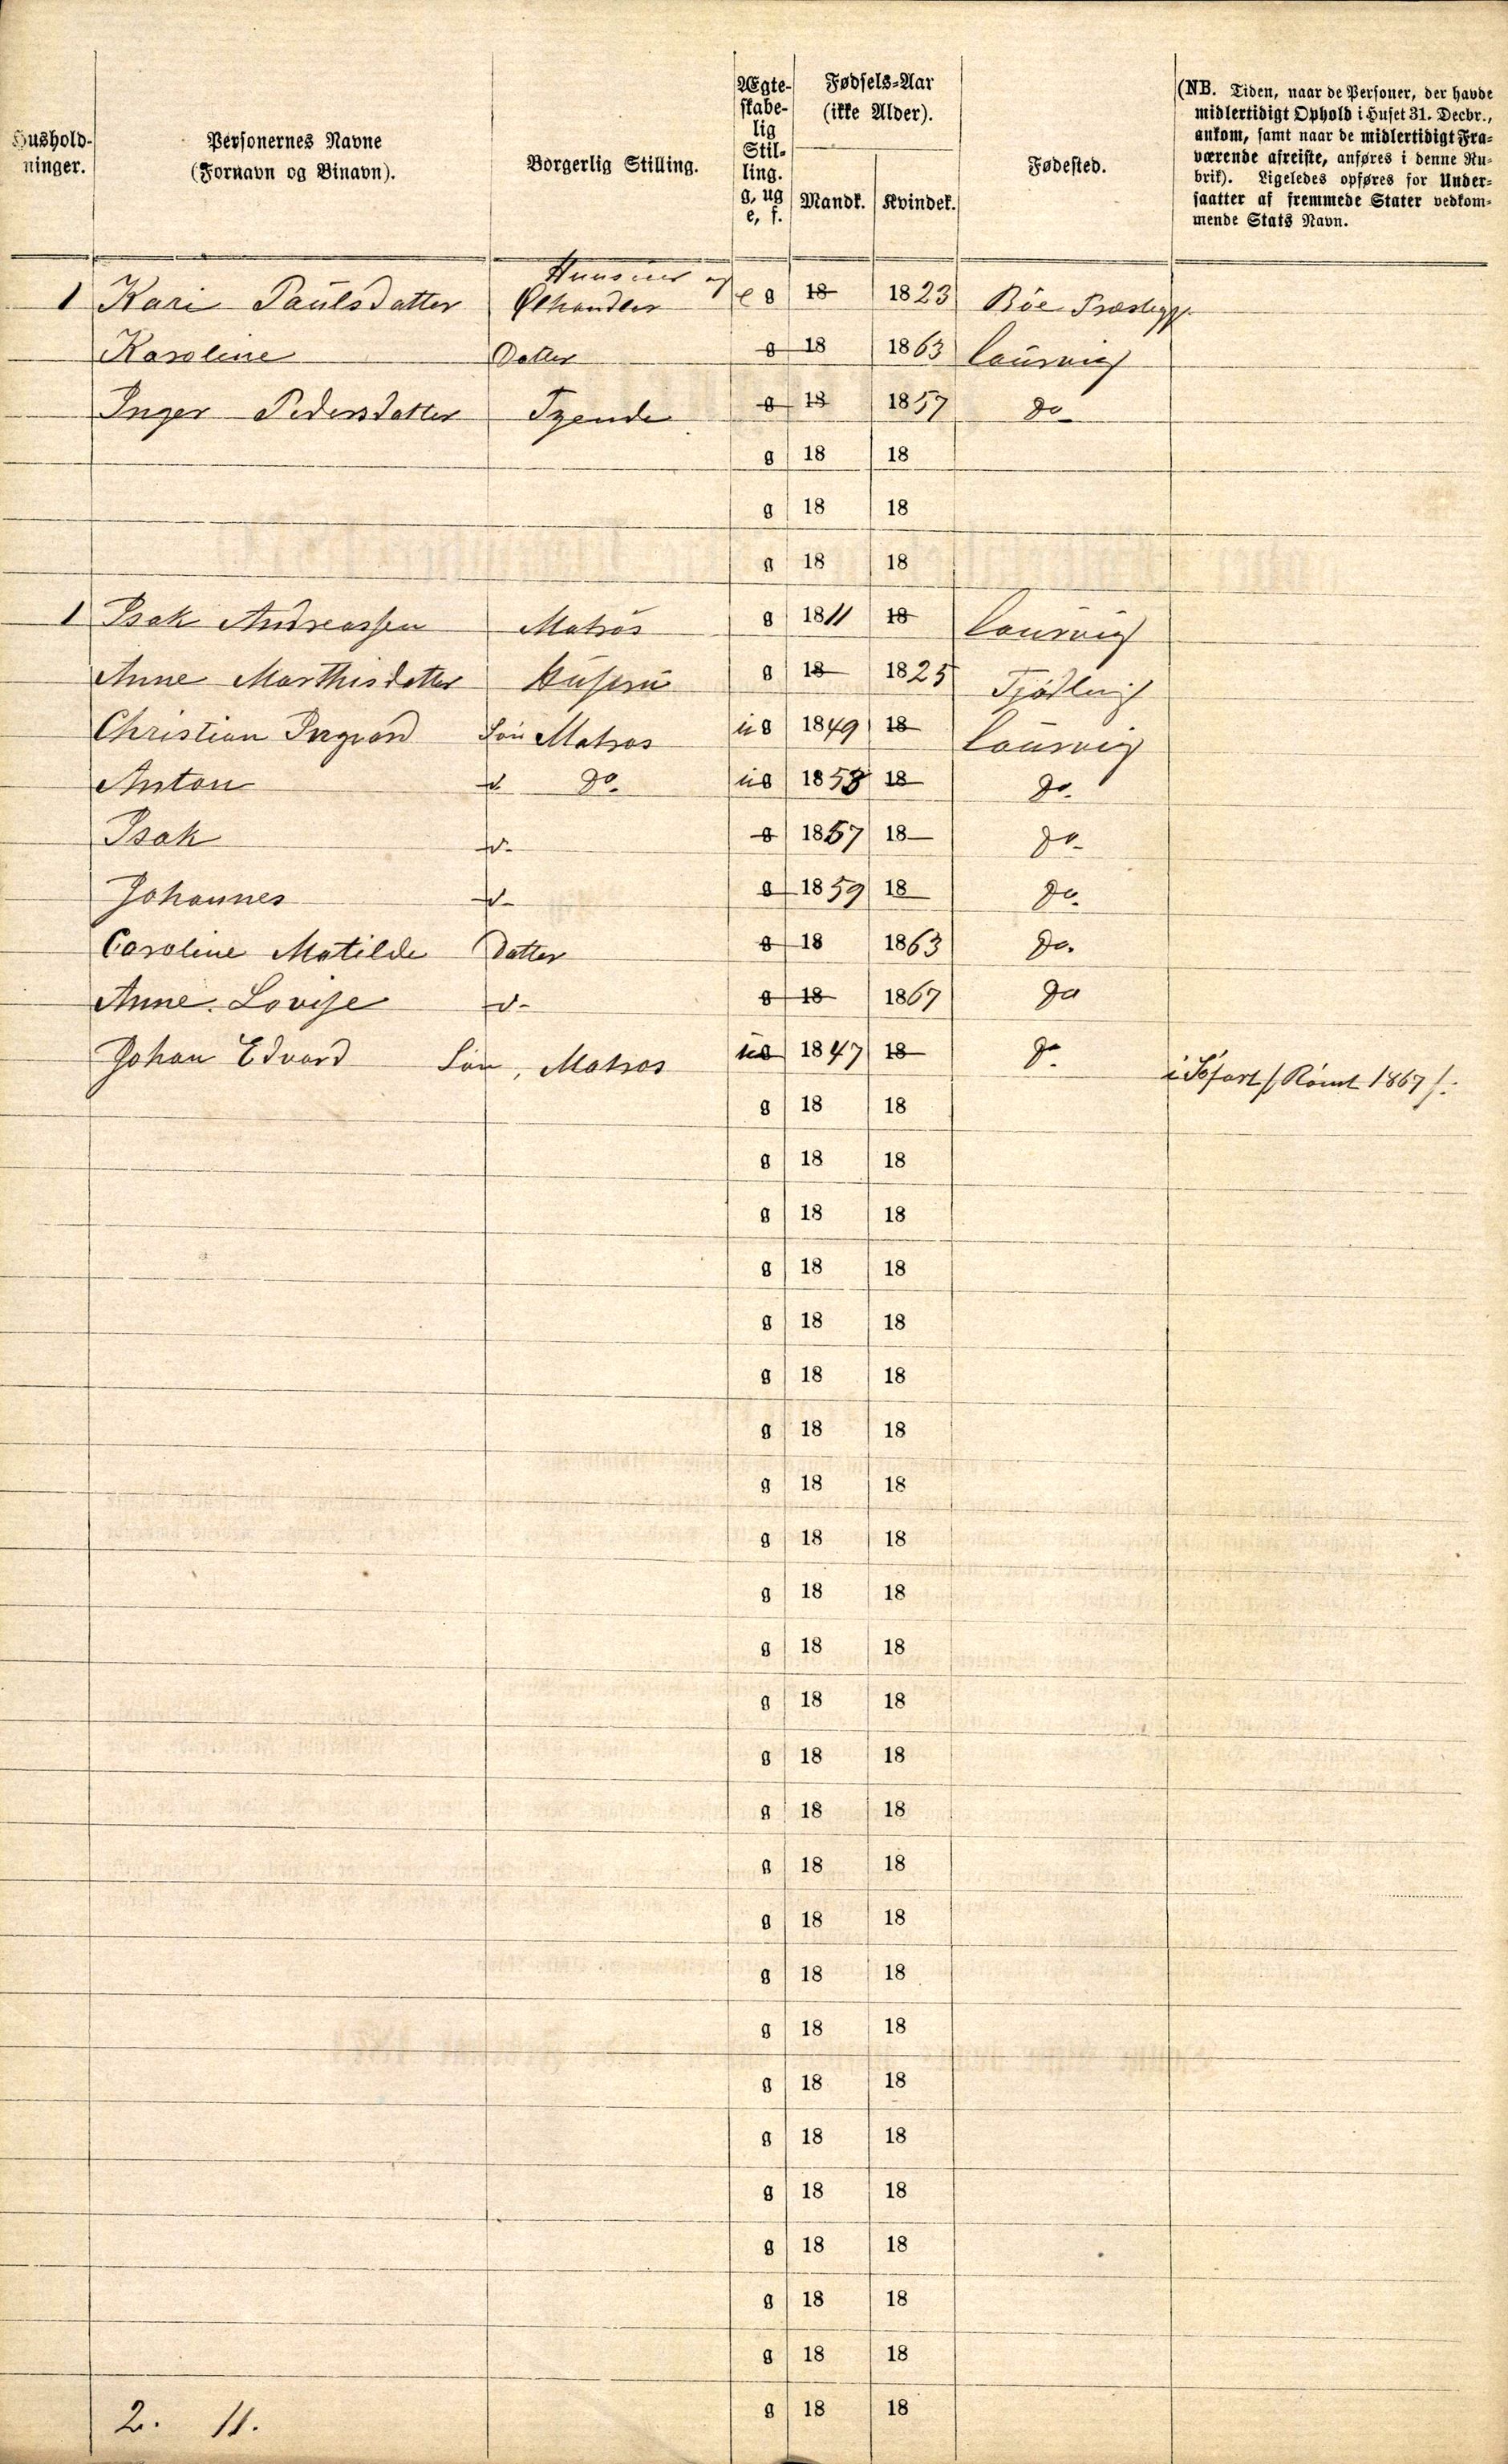 Hushold-ninger. | Personernes Navne (Fornavn og Binavn). | Borgerlig Stilling. | Ægte-skabe-lig Stil-ling. g, ug e, f. | Fødsels-Aar (ikke Alder). Mandk. | Kvindek. | Fødested. | (NB. Tiden, naar de Personer, der havde midlertidigt Ophold i Huset 31. Decbr., ankom, samt naar de midlertidigt Fra-værende afreiste, anføres i denne Ru-brik). Ligeledes opføres for Under-saatter af fremmede Stater vedkom-mende Stats Navn.
1 Kari Paulsdatter Ølhandler e g 18 1823 Böe Præstegj.
Karoline Datter g 18 1863 Laurvig
Inger Pedersdatter Tyende g 18 1857 do
g 18 18
g 18 18
g 18 18
1 Isak Andreassen Matros g 1811 18 Laurvig
Anne Marthisdatter Husfru g 18 1825 Tjödling
Christian Ingvard Sön Matros ug 1849 18 Laurvig
Anton d do ug 1853 18 do.
Isak d- g 1857 18 do
Johannes d- g 1859 18 do.
Caroline Matilde Datter g 18 1863 do.
Anne Lovise d- g 18 1867 do
Johan Edvard Sön, Matros ug 1847 18 do i Söfart /: Römt 1867 /:
g 18 18
g 18 18
g 18 18
g 18 18
g 18 18
g 18 18
g 18 18
g 18 18
g 18 18
g 18 18
g 18 18
g 18 18
g 18 18
g 18 18
g 18 18
g 18 18
g 18 18
g 18 18
g 18 18
g 18 18
g 18 18
g 18 18
g 18 18
g 18 18
2. 11. g 18 18